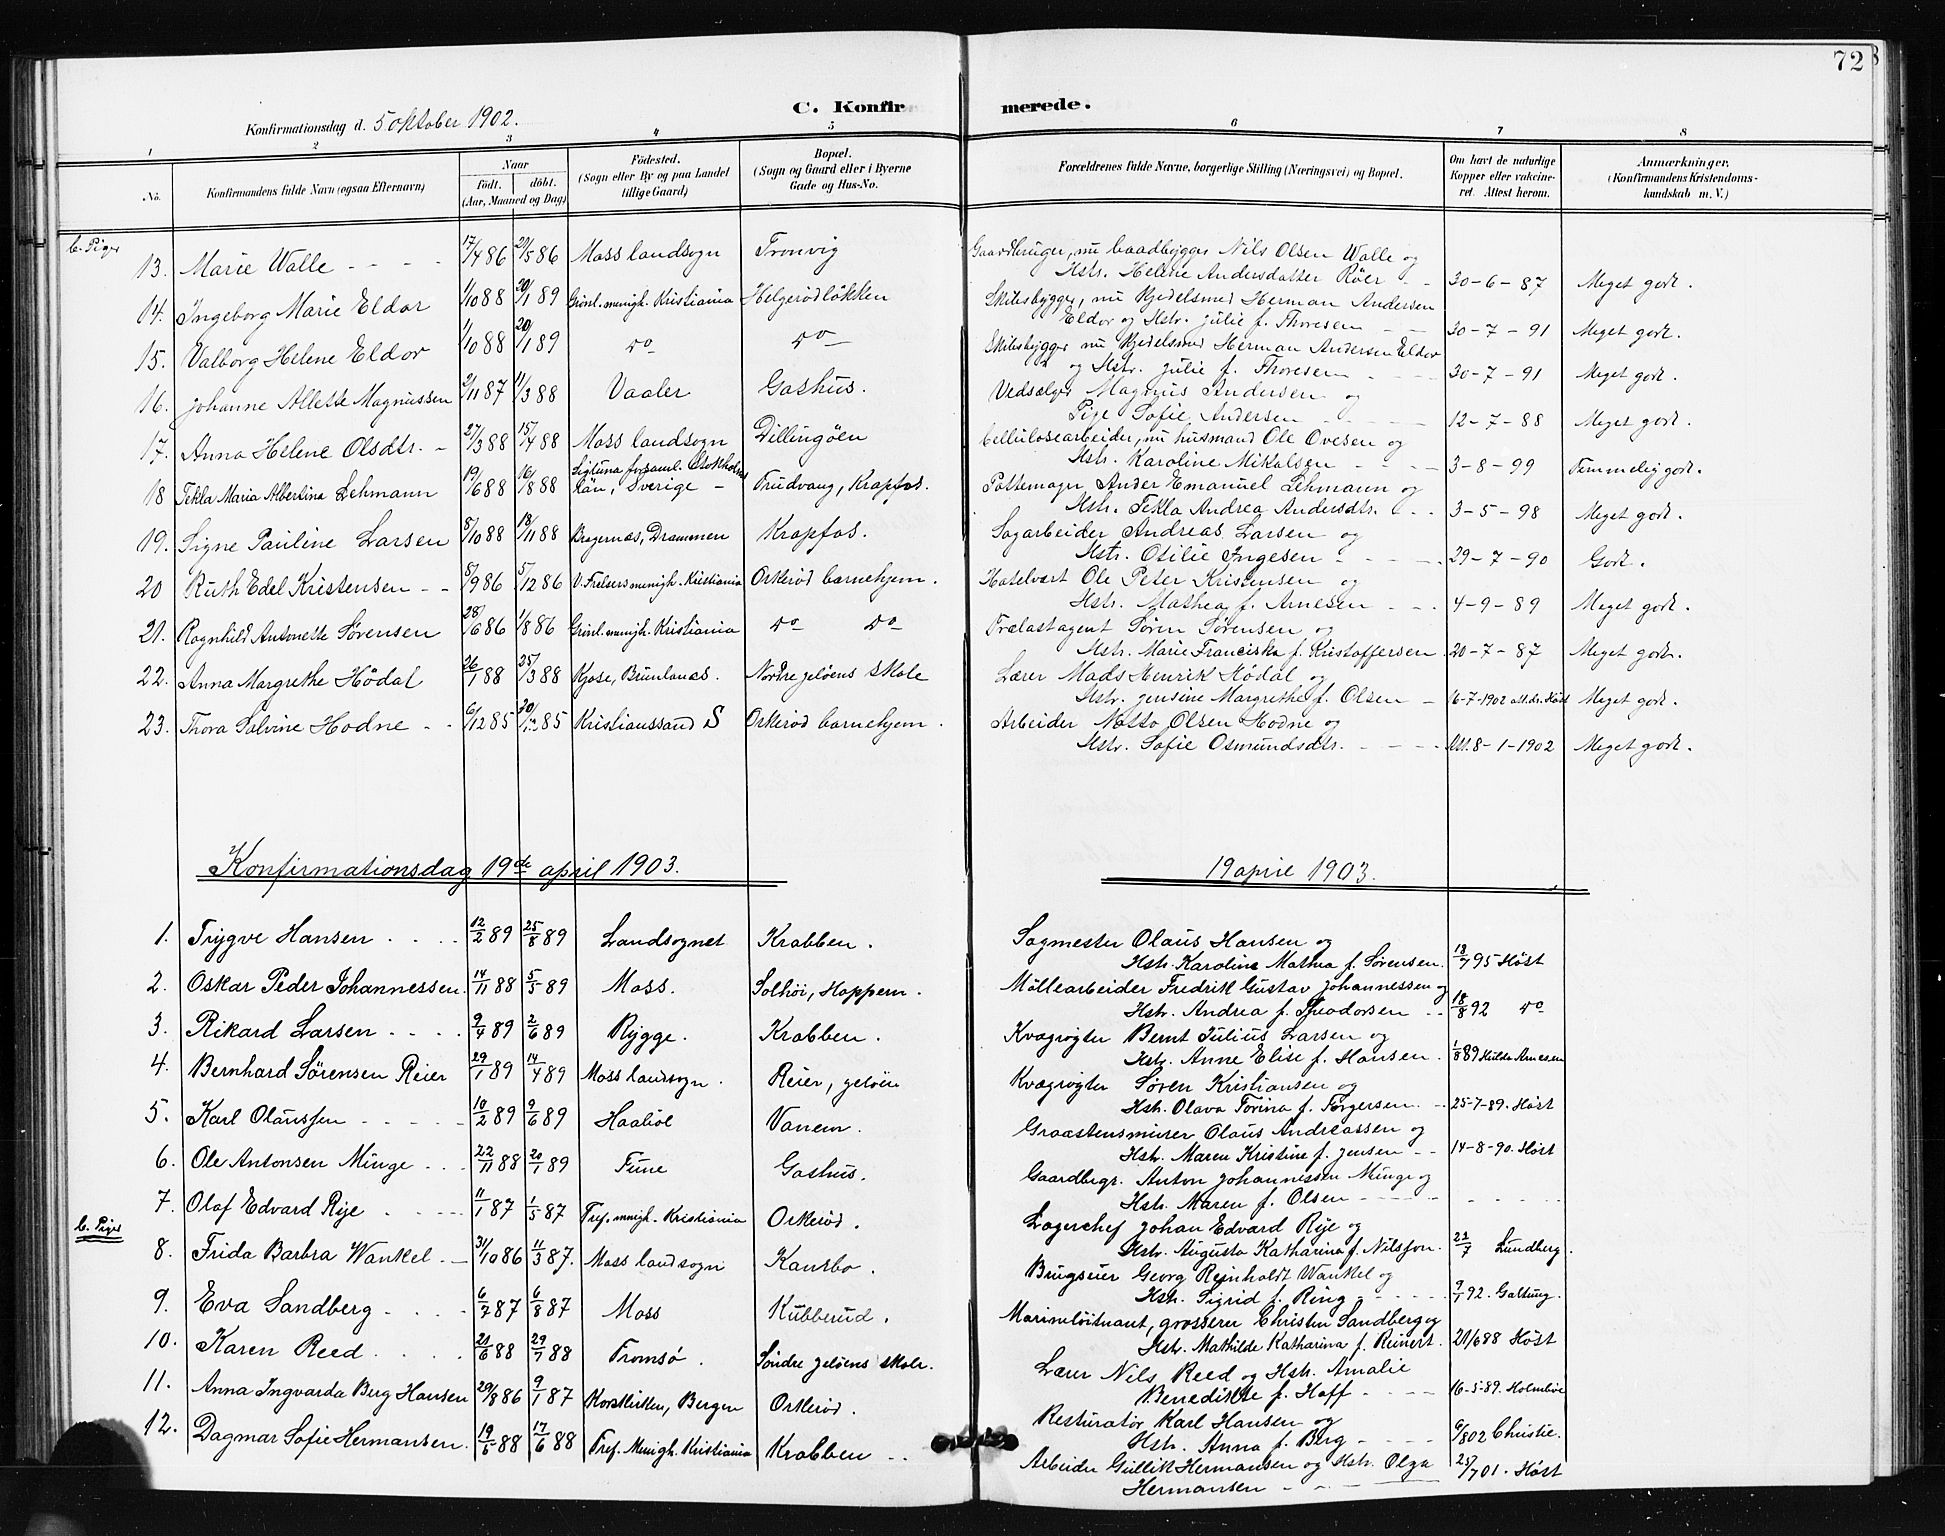 72
C. Konfirmerede.
Konfirmationsdag d. 5 oktober 1902.
1 2 3 4 5 6 7 8
No. Konfirmandens fulde Navn (ogsaa Efternavn) Naar født. døbt. (Aar, Maaned og Dag) Fødested. (Sogn eller By og paa Landet tillige Gaard) Bopæl. (Sogn og Gaard eller i Byerne Gade og Hus-No. Forældrenes fulde Navne, borgerlige Stilling (Næringsvei) og Bopæl. Om havt de naturlige Kopper eller vakcineret. Attest herom. Anmærkninger. (Konfirmandens Kristendomskundskab m. V.)
b. Piger
13. Marie Walle 17/4 86 21/5 86 Moss landsogn Tronvig Gaardbruger, nu baadbygger Nils Olsen Walle og
Hstr. Helene Andersdatter Røer 30-6-87 Meget godt.
14. Ingeborg Marie Eldor 1/10 88 20/1 89 Grønl. menigh. Kristiania Helgerødløkken Skibsbygger, nu Kjedelsmed Herman Andersen
Eldor og Hstr. Julie f. Thoresen 30-7-91 Meget godt.
15. Valborg Helene Eldor 1/10 88 20/1 89 do do Skibsbygger nu Kjedelsmed Herman Andersen Eldor
og Hstr. Julie f. Thoresen 30-7-91 Meget godt.
16. Johanne Allette Magnussen 2/11 87 11/3 88 Vaaler Gashus. Vedsælger Magnus Andersen og
Pige Sofie Andersen 12-7-88 Meget godt.
17. Anna Helene Olsdtr. 27/3 88 15/4 88 Moss landsogn Dillingøen Cellulosearbeider, nu husmand Ole Ovesen og
Hstr. Karoline Mikalsen 3-8-99 Temmelig godt.
18 Tekla Maria Albertina Lehmann 19/6 88 16/8 88 Sigtuna forsaml. Stokholms län, Sverige Trudvang, Krapfos. Pottemager Ander Emanuel Lehmann og
Hstr. Tekla Andrea Andersdtr. 3-5-98 Meget godt.
19. Signe Pauline Larsen 8/10 88 18/11 88 Bragernæs, Drammen Krapfos. Sagarbeider Andreas Larsen og
Hstr. Otilie Ingesen 29-7-90 Godt.
20 Ruth Edel Kristensen 5/9 86 5/12 86 V. Frelsers menigh. Kristiania Orkerød barnehjem. Hotelvært Ole Peter Kristensen og
Hstr. Mathea f. Arnesen 4-9-89 Meget godt.
21. Ragnhild Antonette Sørensen 28/6 86 1/8 86 Grønl. menigh. Kristiania do do Trælastagent Søren Sørensen og
Hstr. Marie Franciska f. Kristoffersen 20-7-87 Meget godt.
22. Anna Margrethe Hødal 26/1 88 25/3 88 Kjose, Brunlanæs. Nordre jeløens skole Lærer Mads Henrik Hødal og
Hstr. Jensine Margrethe f. Olsen 6-7-1902 att. dr. Høst Meget godt.
23. Thora Salvine Hodne 6/12 85 30/12 85 Kristianssand S Orkerød barnehjem. Arbeider Notto Olsen Hodne og
Hstr. Sofie Osmundsdtr. Att. 8-1-1902 Meget godt.
Konfirmationsdag 19de april 1903. 19 april 1903.
1. Trygve Hansen 12/2 89 25/8 89 Landsognet Krabben. Sagmester Olaus Hansen og
Hstr. Karoline Mathea f. Sørensen. 13/7 95 Høst
2. Oskar Peder Johannessen 14/11 88 5/5 89 Moss. Solhøi, Hoppern. Møllearbeider Fredrik Gustav Johannessen og
Hstr. Andrea f. Theodorsen 18/8 92 do
3. Rikard Larsen 9/4 89 2/6 89 Rygge. Krabben. Kvægrøgter Bernt Julius Larsen og
Hstr. Anne Elise f. Hansen. 1/8 89 Hulda Arnesen
4. Bernhard Sørensen Reier 29/1 89 14/4 89 Moss landsogn. Reier, jeløen Kvægrøgter Søren Kristiansen og
Hstr. Olava Torina f. Torgersen. 25-7-89. Høst
5. Karl Olaussen 10/2 89 9/6 89 Haabøl Vanem. Graastensmurer Olaus Andreassen og
Hstr. Maren Kristine f. Jensen 14-8-90. Høst
6. Ole Antonsen Minge 22/11 88 20/1 89 Tune Gashus. Gaardbegr. Anton Johannessen Minge og
Hstr. Maren f. Olsen
7. Olaf Edvard Rye 11/1 87 1/5 87 Tref. menigh. Kristiania Orkerød. Lagerchef Johan Edvard Rye og
Hstr. Augusta Katharina f. Nilsson. 21/7 Lundberg.
b. Piger
8. Frida Barbra Wankel 31/10 86 11/3 87. Moss landsogn Kansbo. Brugseier Georg Reinholdt Wankel og
Hstr. Sigrid f. Ring 9/1 92. Galtung.
9. Eva Sandberg 6/7 87 6/8 87 Moss Kubberud. Marineløitnant, grosserer Christen Sandberg og
Hstr. Mathilde Katharina f. Reinert. 21/6 88 Høst
10. Karen Reed 21/6 88 29/7 88 Tromsø. Søndre jeløens skole. Lærer Nils Reed og Hstr. Amalie
Benedikte f. Hoff 16-5-89. Holmboe
11. Anna Ingvarda Berg Hansen 29/8 86 9/1 87 Korskirken, Bergen Orkerød. Resturatør Karl Hansen og
Hstr. Anna f. Berg 6/8 02 Christie.
12. Dagmar Sofie Hermansen 19/5 88 17/6 88 Tref. Menigh. Kristiania Krabben Arbeider Gullik Hermansen og Hstr. Olga
Hermansen 25/7 01. Høst